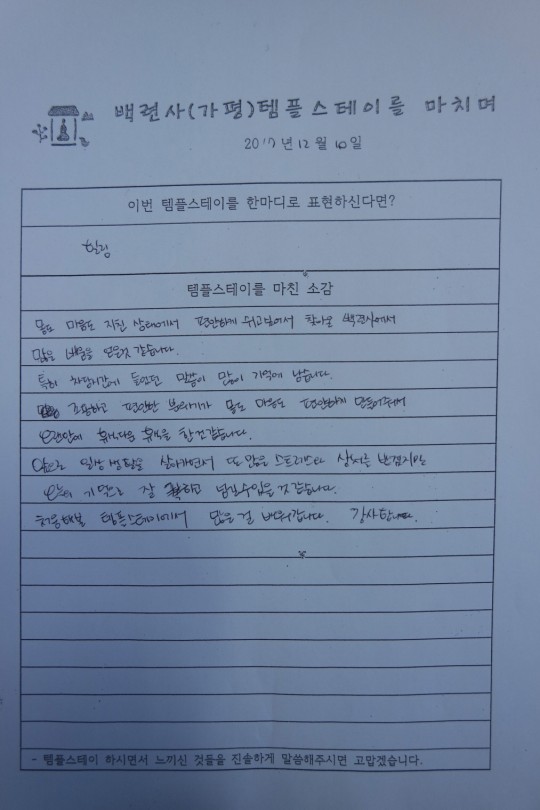 백련사(가평)템플스테이를 마치며
2017년 12월 10일
이번 템플스테이를 한마디로 표현하신다면?
힐링
템플스테이를 마친 소감
몸도 마음도 지친 상태에서 편안하게 쉬고싶어서 찾아온 백련사에서
많은 배움을 얻은것 같습니다.
특히 차담시간에 들었던 말씀이 많이 기억에 남습니다.
조용하고 편안한 분위기가 몸도 마음도 편안하게 만들어줘서
오랜만에 휴식다운 휴식을 한것같습니다.
앞으로 일상생활을 살아가면서 또 많은 스트레스와 상처를 받겠지만
오늘의 기억으로 잘 넘길수있을것 같습니다.
처음해본 템플스테이에서 많은 걸 배워갑니다. 감사합니다.
- 템플스테이 하시면서 느끼신 것들을 진솔하게 말씀해주시면 고맙겠습니다.